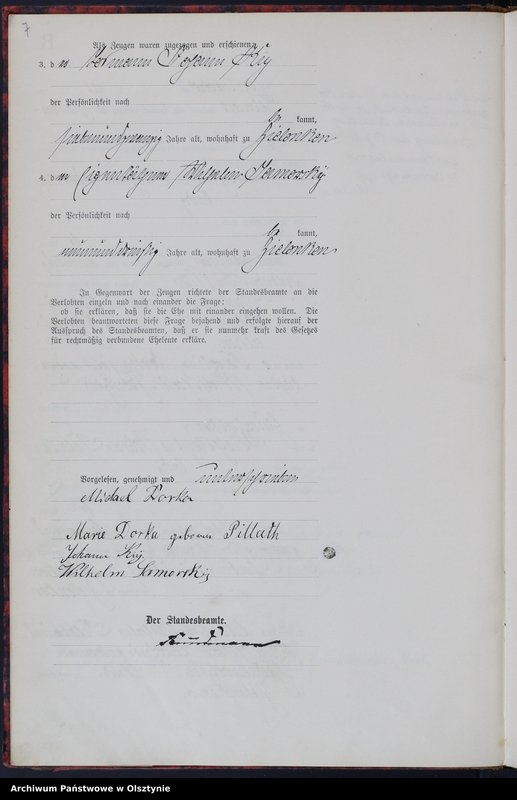 7
Als Zeugen waren zugezogen und erschienen:
3. den Johann Kry
der Persönlichkeit nach
be kannt,
siebenundzwanzig Jahre alt, wohnhaft zu Zielonken
4. den Eigenkäthner Wilhelm Sarnowskij
der Persönlichkeit nach
be kannt,
neununddreißig Jahre alt, wohnhaft zu Zielonken
In Gegenwart der Zeugen richtete der Standesbeamte an die
Verlobten einzeln und nach einander die Frage:
ob sie erklären, daß sie die Ehe mit einander eingehen wollen. Die
Verlobten beantworteten diese Frage bejahend und erfolgte hierauf der
Ausspruch des Standesbeamten, daß er sie nunmehr kraft des Gesetzes
für rechtmäßig verbundene Eheleute erkläre.
Vorgelesen, genehmigt und unterschrieben
Michael Dorka
Marie Dorka geboren Pillath
Johann Kry
Wilhelm Sarnowskij
Der Standesbeamte.
Archiwum Państwowe w Olsztynie